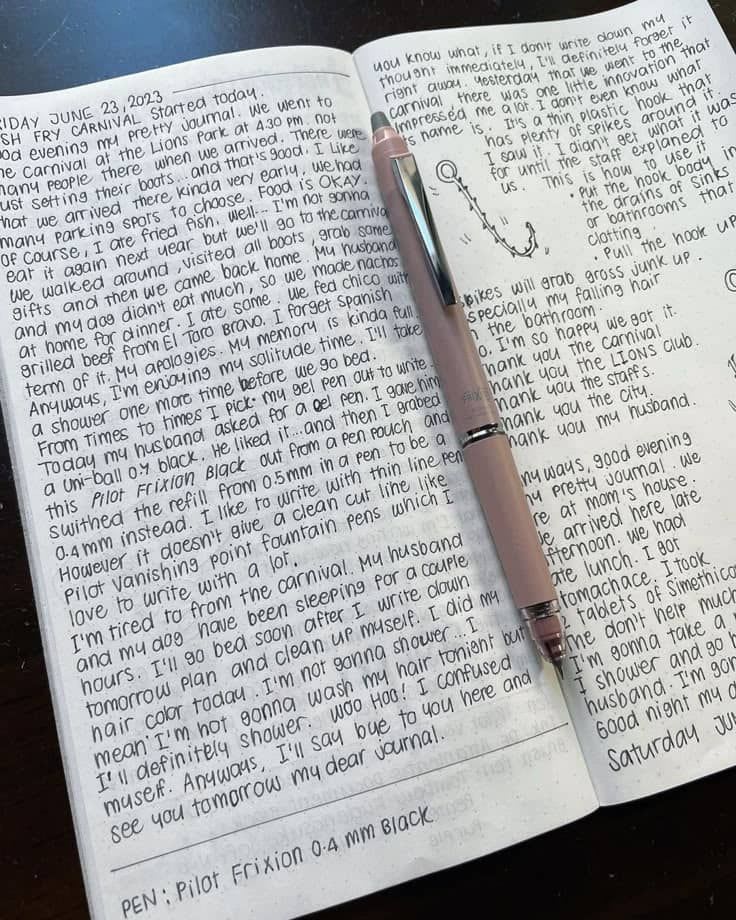 RIDAY JUNE 23, 2023
SH FRY CARNIVAL started today.
od evening my pretty journal. We went to
he carnival at the Lions Park at 4.30 pm. not
many people there when we arrived. There were
ust setting their boots...and that's good. I like
that we arrived there kinda very early, we had
many parking spots to choose. Food is OKAY.
Of course, I ate fried fish. Well... I'm not gonna
eat it again next year but we'll go to the carnival
We walked around, visited all boots, grab some
gifts and then we came back home. My husband
and my dog didn't eat much, so we made nachos
at home for dinner. I ate some. We fed chico with
grilled beef from El Toro Bravo. I forget Spanish
term of it. My apologies. My memory is kinda full.
Anyways, I'm enjoying my solitude time. I'll take
a shower one more time before we go bed.
From times to times I pick my gel pen out to write.
Today my husband asked for a gel pen. I gave him
a uni-ball 0.7 black. He liked it...and then I grabed
this Pilot Frixion Black out from a pen pouch and
swithed the refill from 0.5mm in a pen to be a
0.4 mm instead. I like to write with thin line pen
However it doesn't give a clean cut line like
Pilot Vanishing Point fountain pens which I
love to write with a lot.
I'm tired to from the carnival. My husband
and my dog have been sleeping for a couple
hours. I'll go bed soon after I write down
tomorrow plan and clean up myself. I did my
hair color today. I'm not gonna shower... I
mean I'm not gonna wash my hair tonight but
I'll definitely shower. Woo Hoo! I confused
myself. Anyways, I'll say bye to you here and
see you tomorrow my dear journal.
PEN : Pilot Frixion 0.4 mm Black
you know what, if I don't write down my
thought immediately, I'll definitely forget it
right away. Yesterday that we went to the
carnival there was one little innovation that
impressed me a lot. I don't even know what
s name is. It's a thin plastic hook that
has plenty of spikes around it.
I saw it. I didn't get what it was
for until the staff explaned to
us. This is how to use it
• Put the hook body in
the drains of sinks
or bathrooms that
clotting.
• Pull the hook up
pikes will grab gross junk up.
specially my falling hair
the bathroom.
o. I'm so happy we got it.
hank you the carnival
hank you the LIONS club.
hank you the staffs.
hank you the city.
hank you my husband.
FRIXI
nyways, good evening
y pretty journal. We
re at mom's house.
e arrived here late
fternoon. We had
ate lunch. I got
tomachace. I took
tablets of Simethico
ne don't help much
I'm gonna take a
I shower and go h
husband. I'm gon
Good night my d
Saturday JU